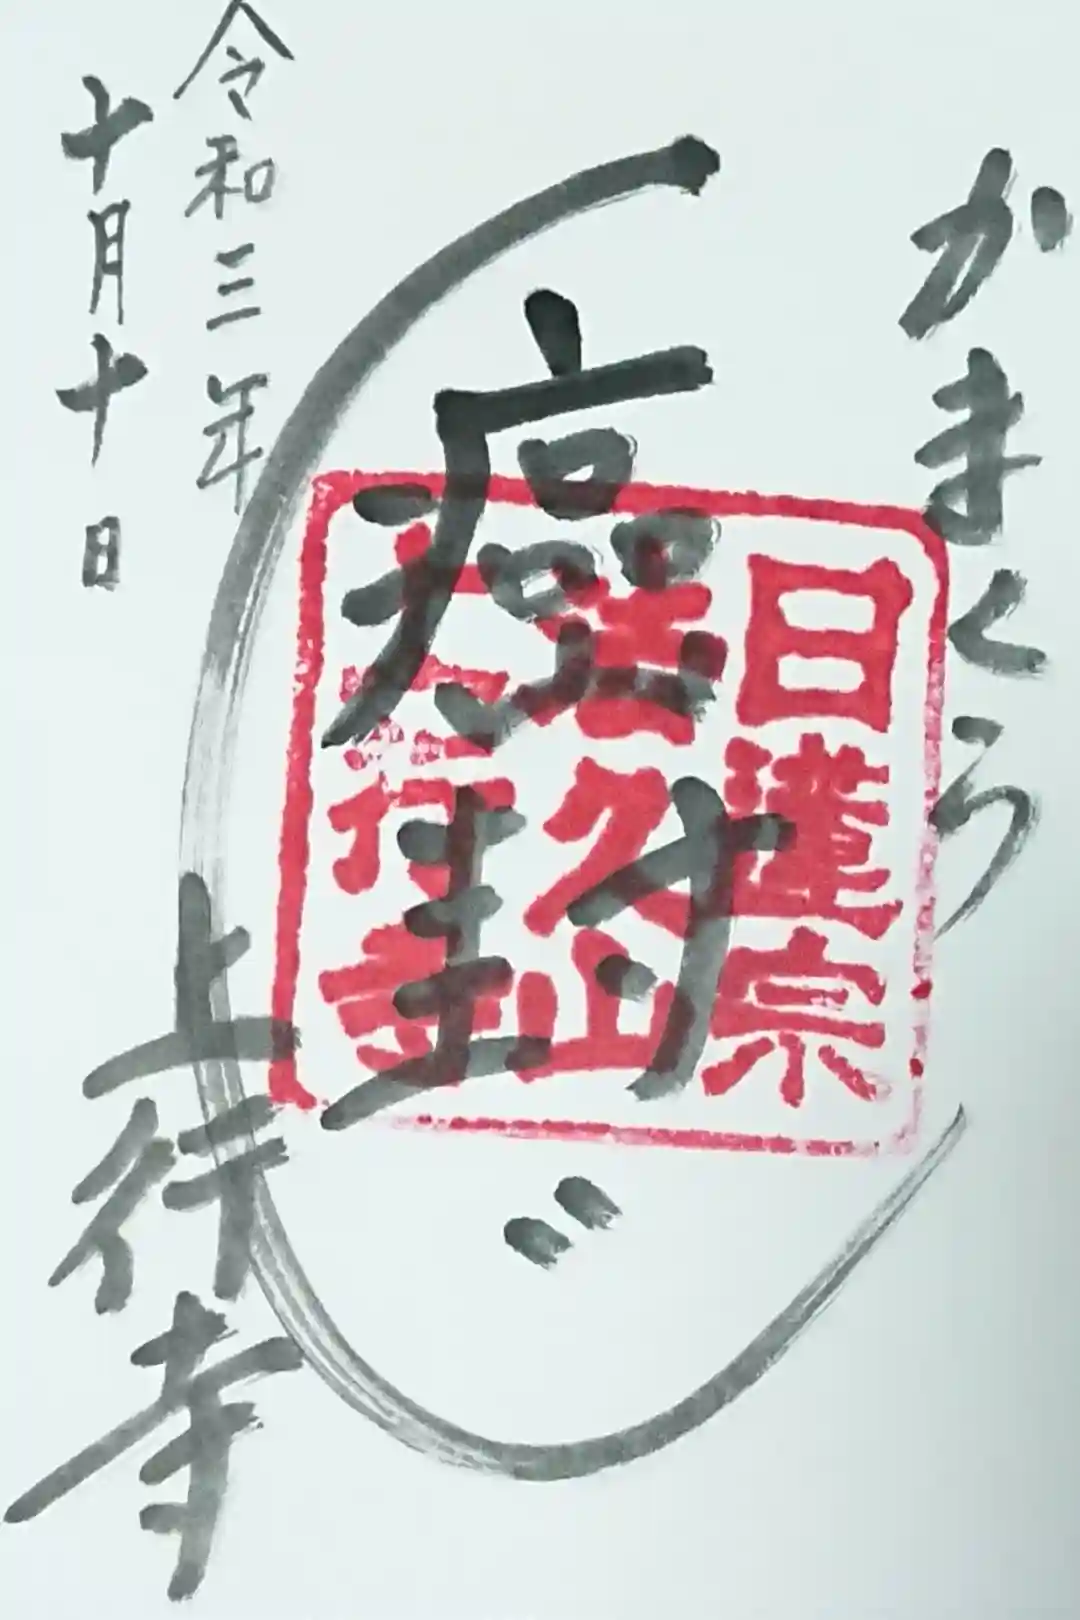 かまくら
癌封じ
日蓮宗
法久山
上行寺
令和三年
十月十日
上行寺